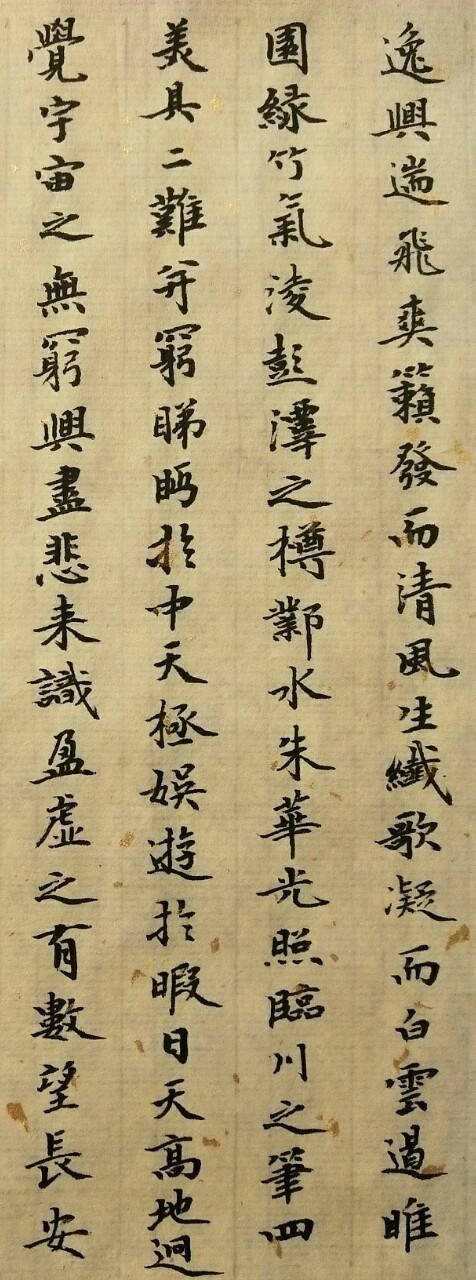 逸興遄飛爽籟發而清風生纖歌凝而白雲遏睢
園緑竹氣淩彭澤之樽鄴水朱華光照臨川之筆四
美具二難并窮睇眄於中天極娛遊於暇日天高地迥
覺宇宙之無窮興盡悲来識盈虛之有數望長安